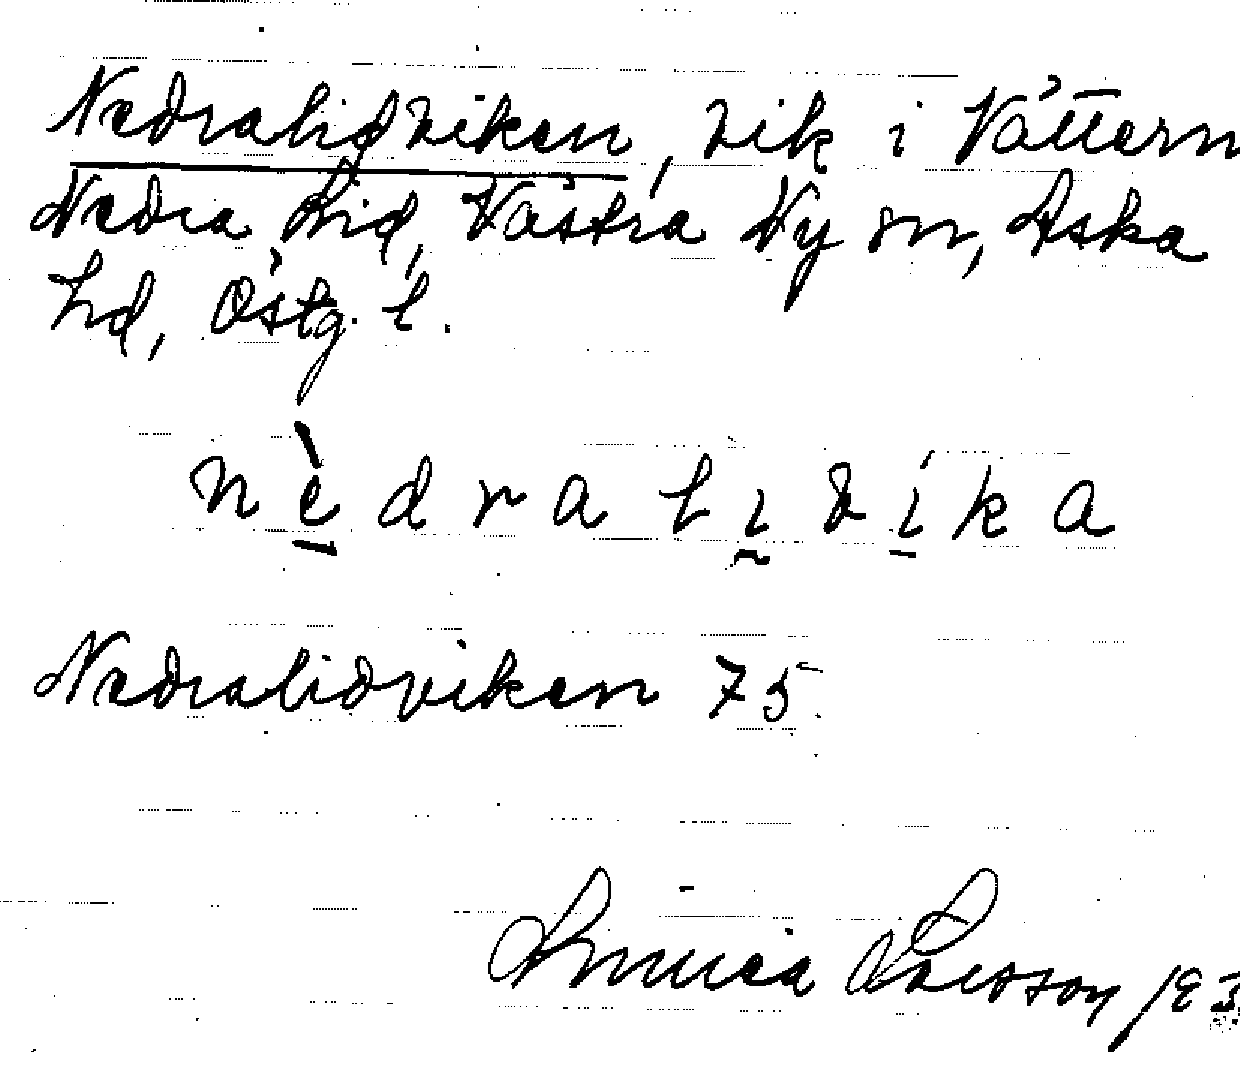 Nedralidviken, vik i Vättern
Nedra Lid, Västra Ny sn, Aska
hd, Östg. l.
nèdralivíka
Nedralidviken 75
Annica Larsson /83